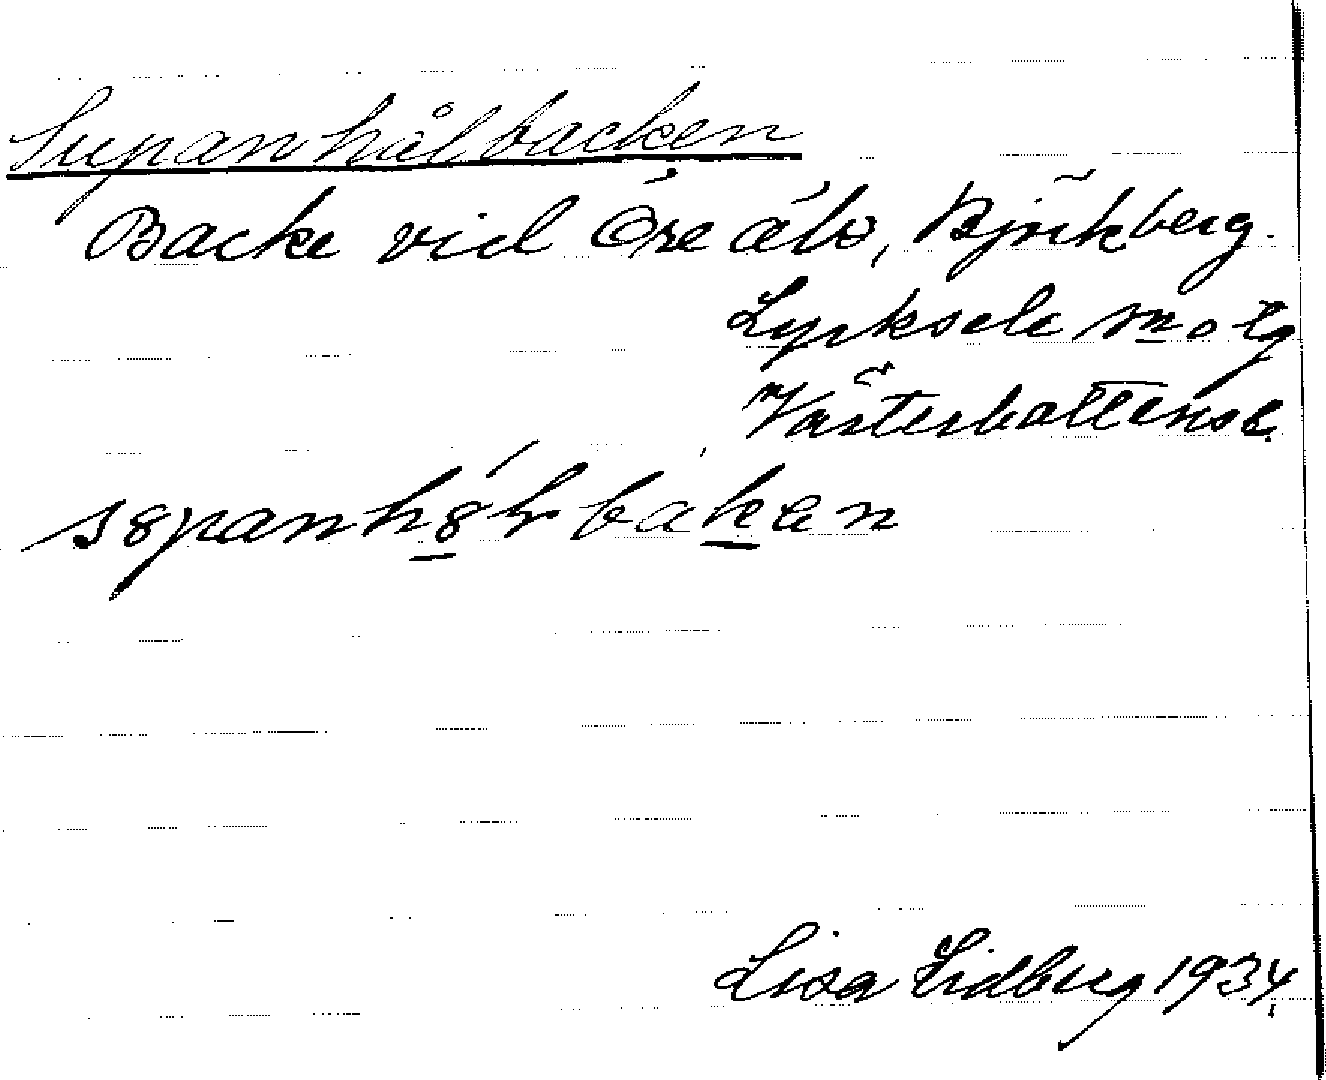 Supanhålbacken
Backe vid Öre älv, Björkberg.
Lycksele
Västerbottensl.
Lisa Lidberg 1934